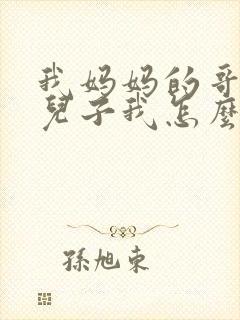 我妈妈的哥
兒子我怎麼
孫旭東